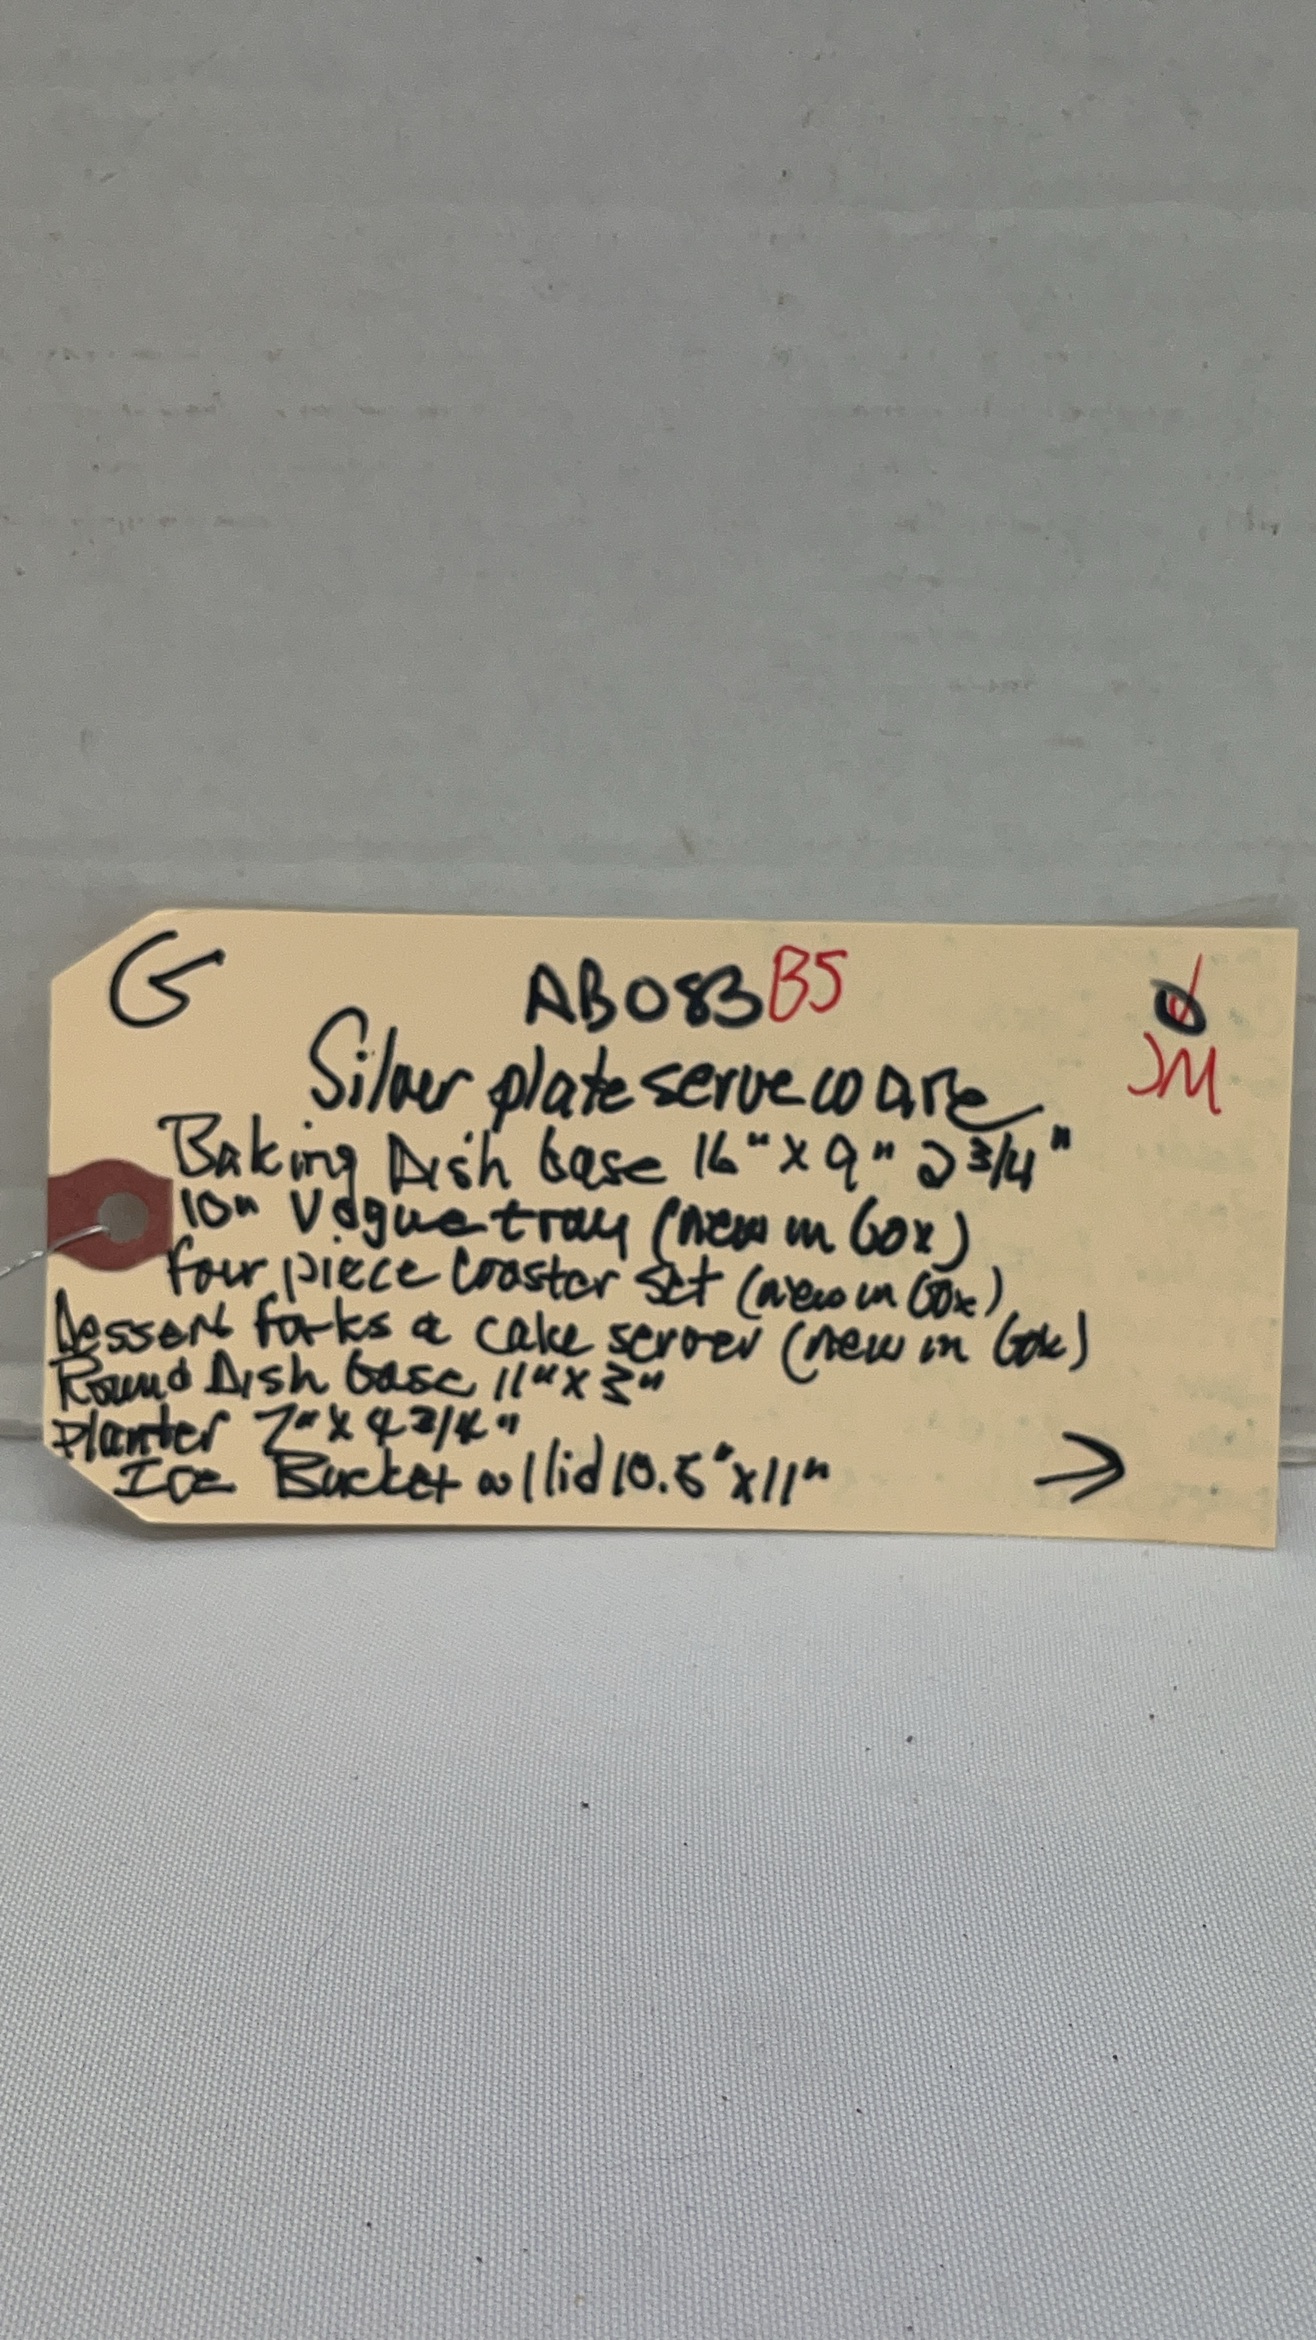 G AB083 B5
JM
Silver plate serveware
Baking Dish base 16" x 9" 2 3/4"
10" Vogue tray (new in box)
four piece coaster set (new in box)
Dessert forks & cake server (new in box)
Round Dish base 11" x 3"
planter 7" x 4 3/4"
Ice Bucket w/lid 10.5" x 11"
→